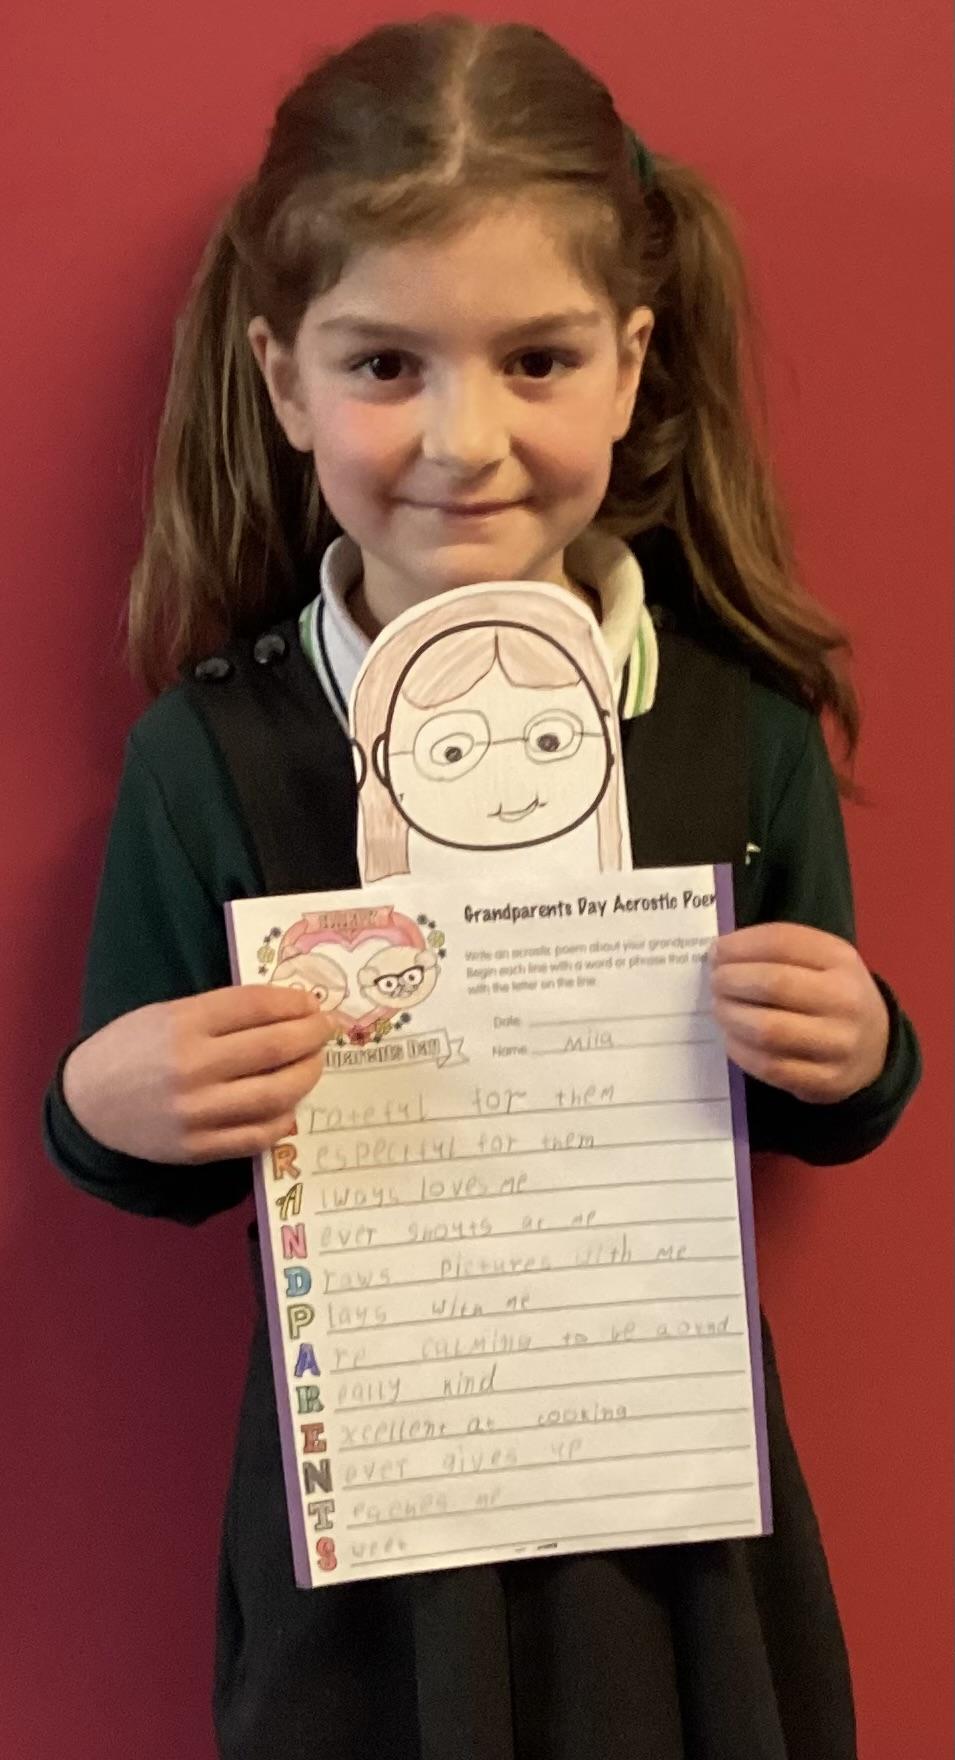 Grandparents Day Acrostic Poem
Write an acrostic poem about your grandparents
Begin each line with a word or phrase that
with the letter on the line.
Date
Name Mila
rateful for them
Respectful for them
Always loves me
Never shouts at me
Draws pictures with me
Plays with me
Are calming to be aound
Really kind
Excellent at cooking
Never gives up
Teaches me
Sweet